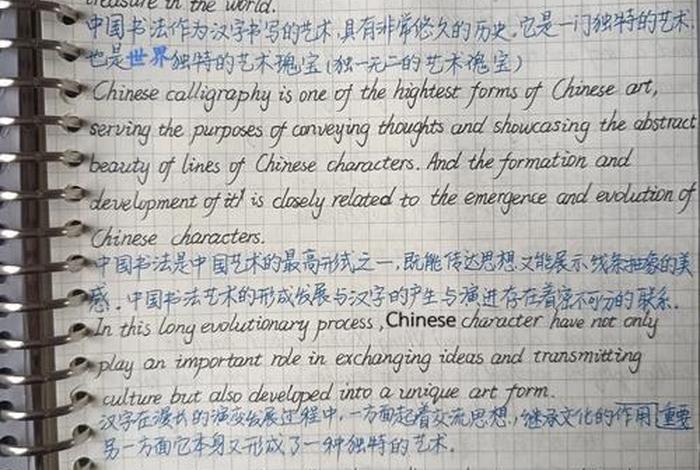 treasure in the world.
中国书法作为汉字书写的艺术,具有非常悠久的历史。它是一门独特的艺术
也是世界独特的艺术瑰宝(独一无二的艺术瑰宝)
Chinese calligraphy is one of the hightest forms of Chinese art,
serving the purposes of conveying thoughts and showcasing the abstract
beauty of lines of Chinese characters. And the formation and
development of it is closely related to the emergence and evolution of
Chinese characters.
中国书法是中国艺术的最高形式之一,既能传达思想又能展示线条抽象的美
感.中国书法艺术的形成发展与汉字的产生与演进存在着密不可分的联系.
In this long evolutionary process, Chinese character have not only
play an important role in exchanging ideas and transmitting
culture but also developed into a unique art form.
汉字在漫长的演变发展过程中,一方面起着交流思想,继承文化的作用 重要
另一方面它本身又形成了一种独特的艺术.